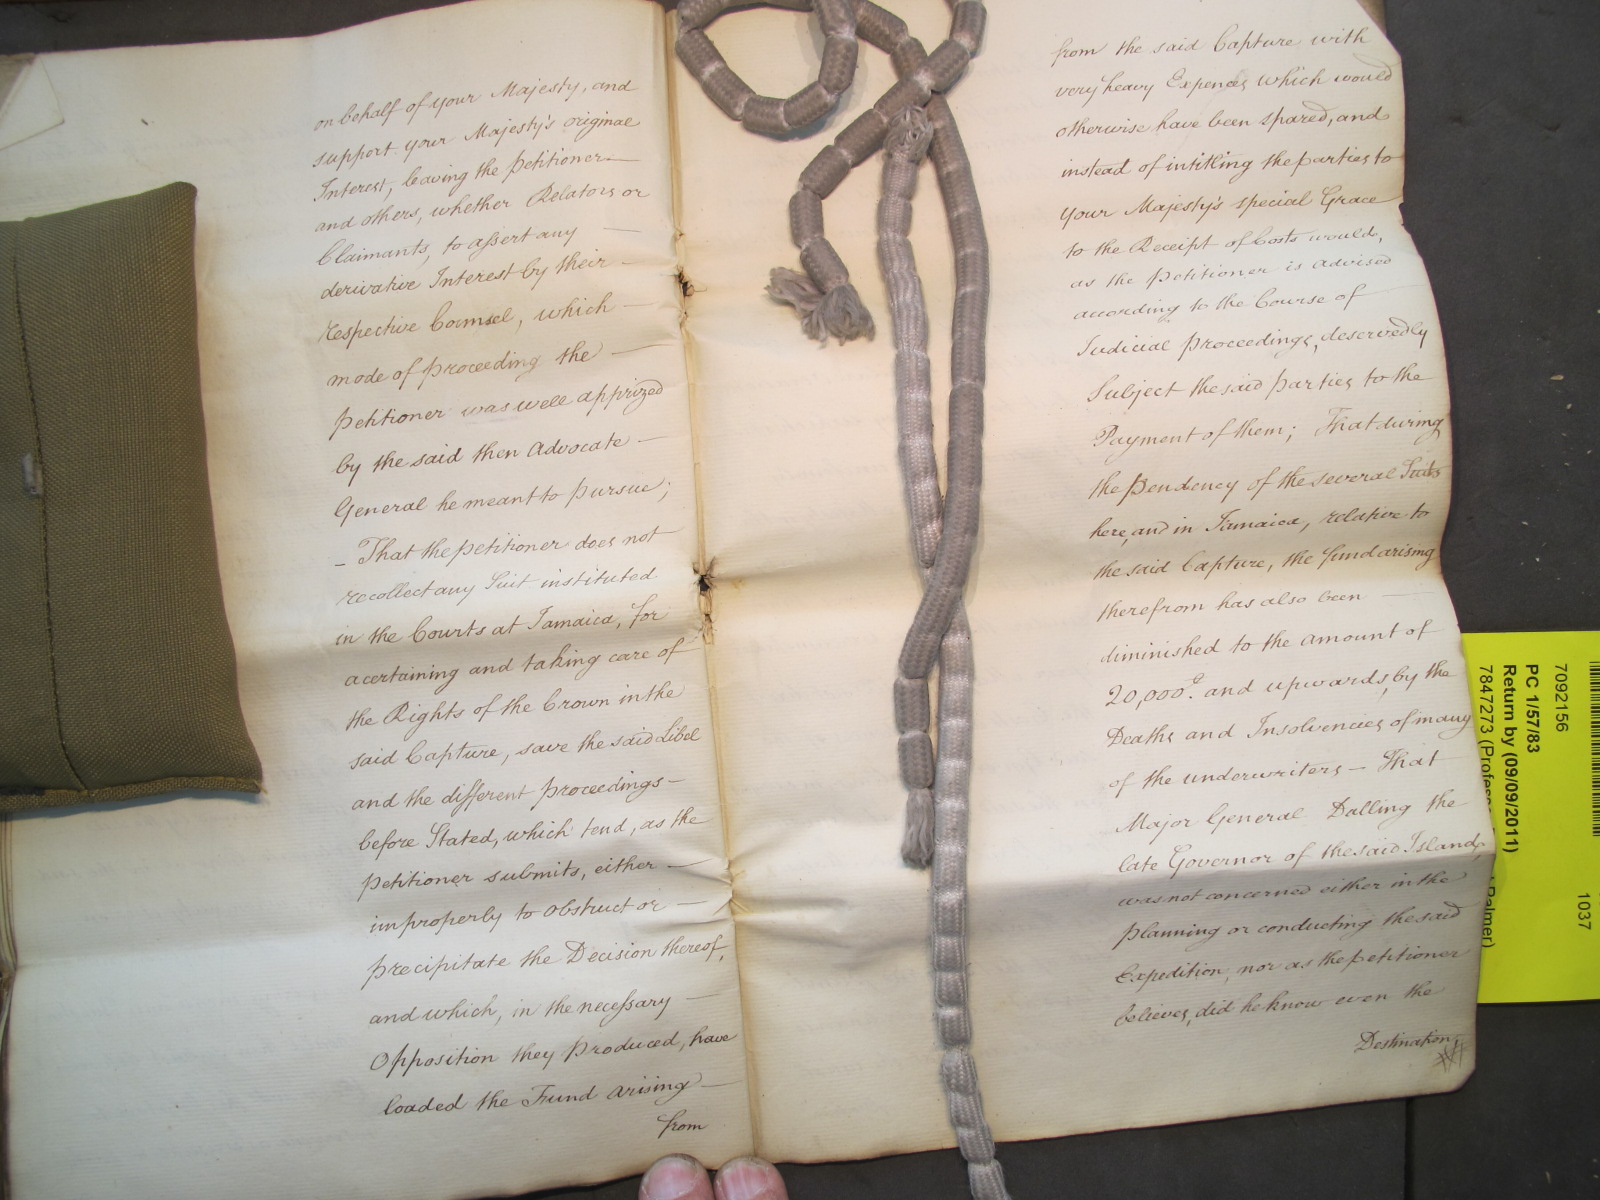 on behalf of your Majesty, and
support your Majesty's original
Interest, leaving the Petitioner
and others, whether Relators or
Claimants, to assert any
derivative Interest by their
respective Counsel, which
mode of proceeding the
Petitioner was well apprized
by the said then Advocate
General he meant to pursue;
- That the petitioner does not
recollect any Suit instituted
in the Courts at Jamaica, for
acertaining and taking care of
the Rights of the Crown in the
said Capture, save the said Libel
and the different proceedings
before Stated, which tend, as the
petitioner submits, either
improperly to obstruct or
precipitate the Decision thereof,
and which, in the necessary
Opposition they produced, have
loaded the Fund arising
from
from the said Capture with
very heavy Expences which would
otherwise have been spared, and
instead of intitling the parties to
your Majesty's special Grace
to the Receipt of Costs would,
as the Petitioner is advised
according to the Course of
Judicial Proceedings, deservedly
Subject the said parties to the
Payment of them; That during
the Pendency of the several Suits
here, and in Jamaica, relative to
the said Capture, the fund arising
therefrom has also been
diminished to the amount of
20,000£ and upwards, by the
Deaths and Insolvencies of many
of the underwriters - That
Major General Dalling the
late Governor of the said Island,
was not concerned either in the
planning or conducting the said
Expedition, nor as the petitioner
believes, did he know even the
Destination,
7092156
PC 1/57/83
Return by (09/09/2011)
7847273 (Profess
Palmer)
1037